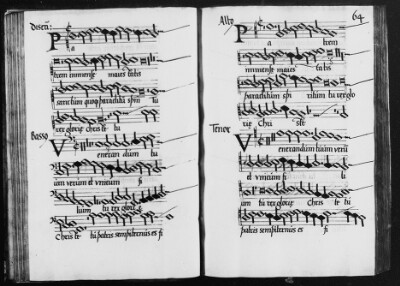 P a
trem immense maies tatis
sanctum quoq paraclitũ spm tu
rex glorie chris te tu
Basso
V eneran dum tu
um verum et vnicum fi
lium tu rex glorie
Chris te tu patris sempiternus es fi
Alto
64
P a trem
immense maies tatis
paraclitum spi ritum tu rex glo
rie Chri ste
Tenor
V enerandum tuum verũ
et vnicum fi li
um tu rex glorie Chris te tu
patris sempiternus es fi